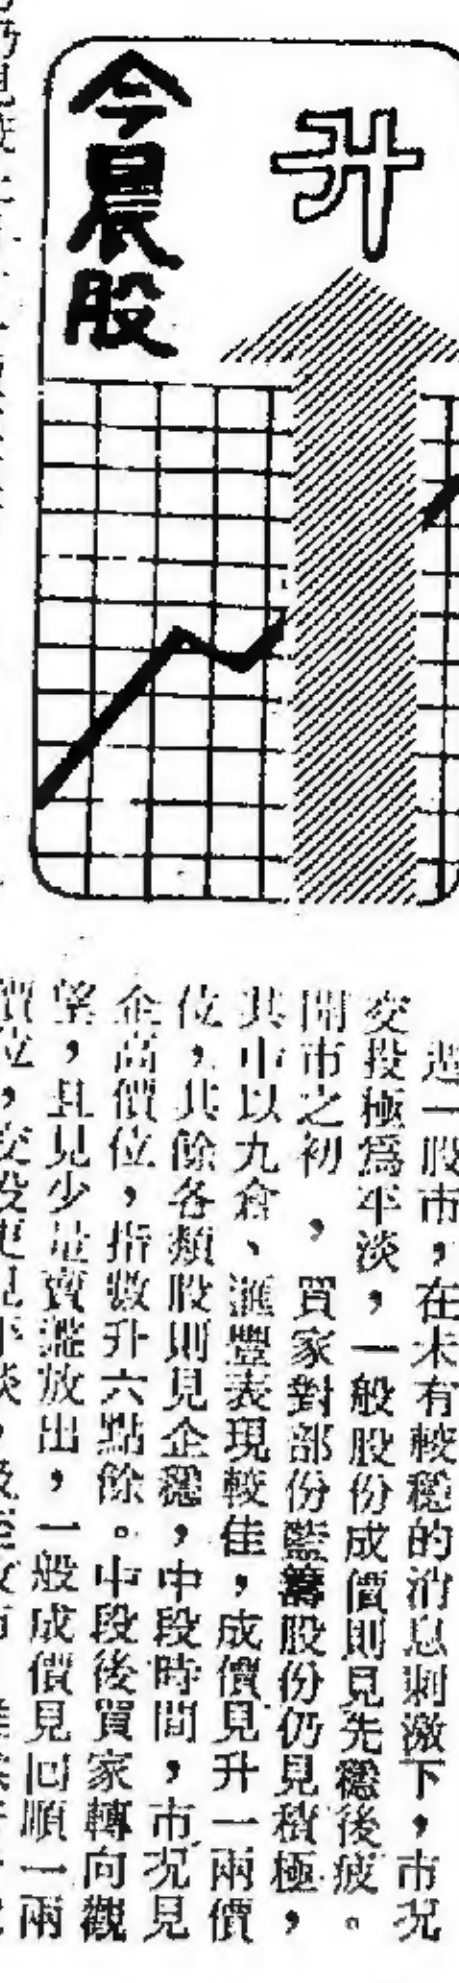 升
今晨股
週一股市,在未有較穩的消息刺激下,市況
交投極爲平淡,一般股份成價則見先穩後疲。
開市之初,買家對部份藍籌股份仍見積極,
其中以九倉、滙豐表現較佳,成價見升一兩價
位,其餘各類股則見企穩,中段時間,市況見
企高價位,指數升六點餘。中段後買家轉向觀
望,且見少量賣盤放出,一般成價見回順一兩
價位,交投更見平淡,